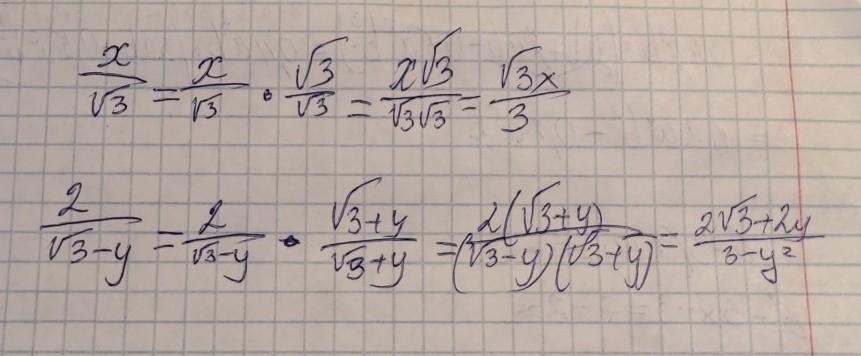 x/√3 = x/√3 · √3/√3 = x√3/√3√3 = √3x/3
2/(√3-y) = 2/(√3-y) · (√3+y)/(√3+y) = 2(√3+y)/(√3-y)(√3+y) = (2√3+2y)/(3-y²)